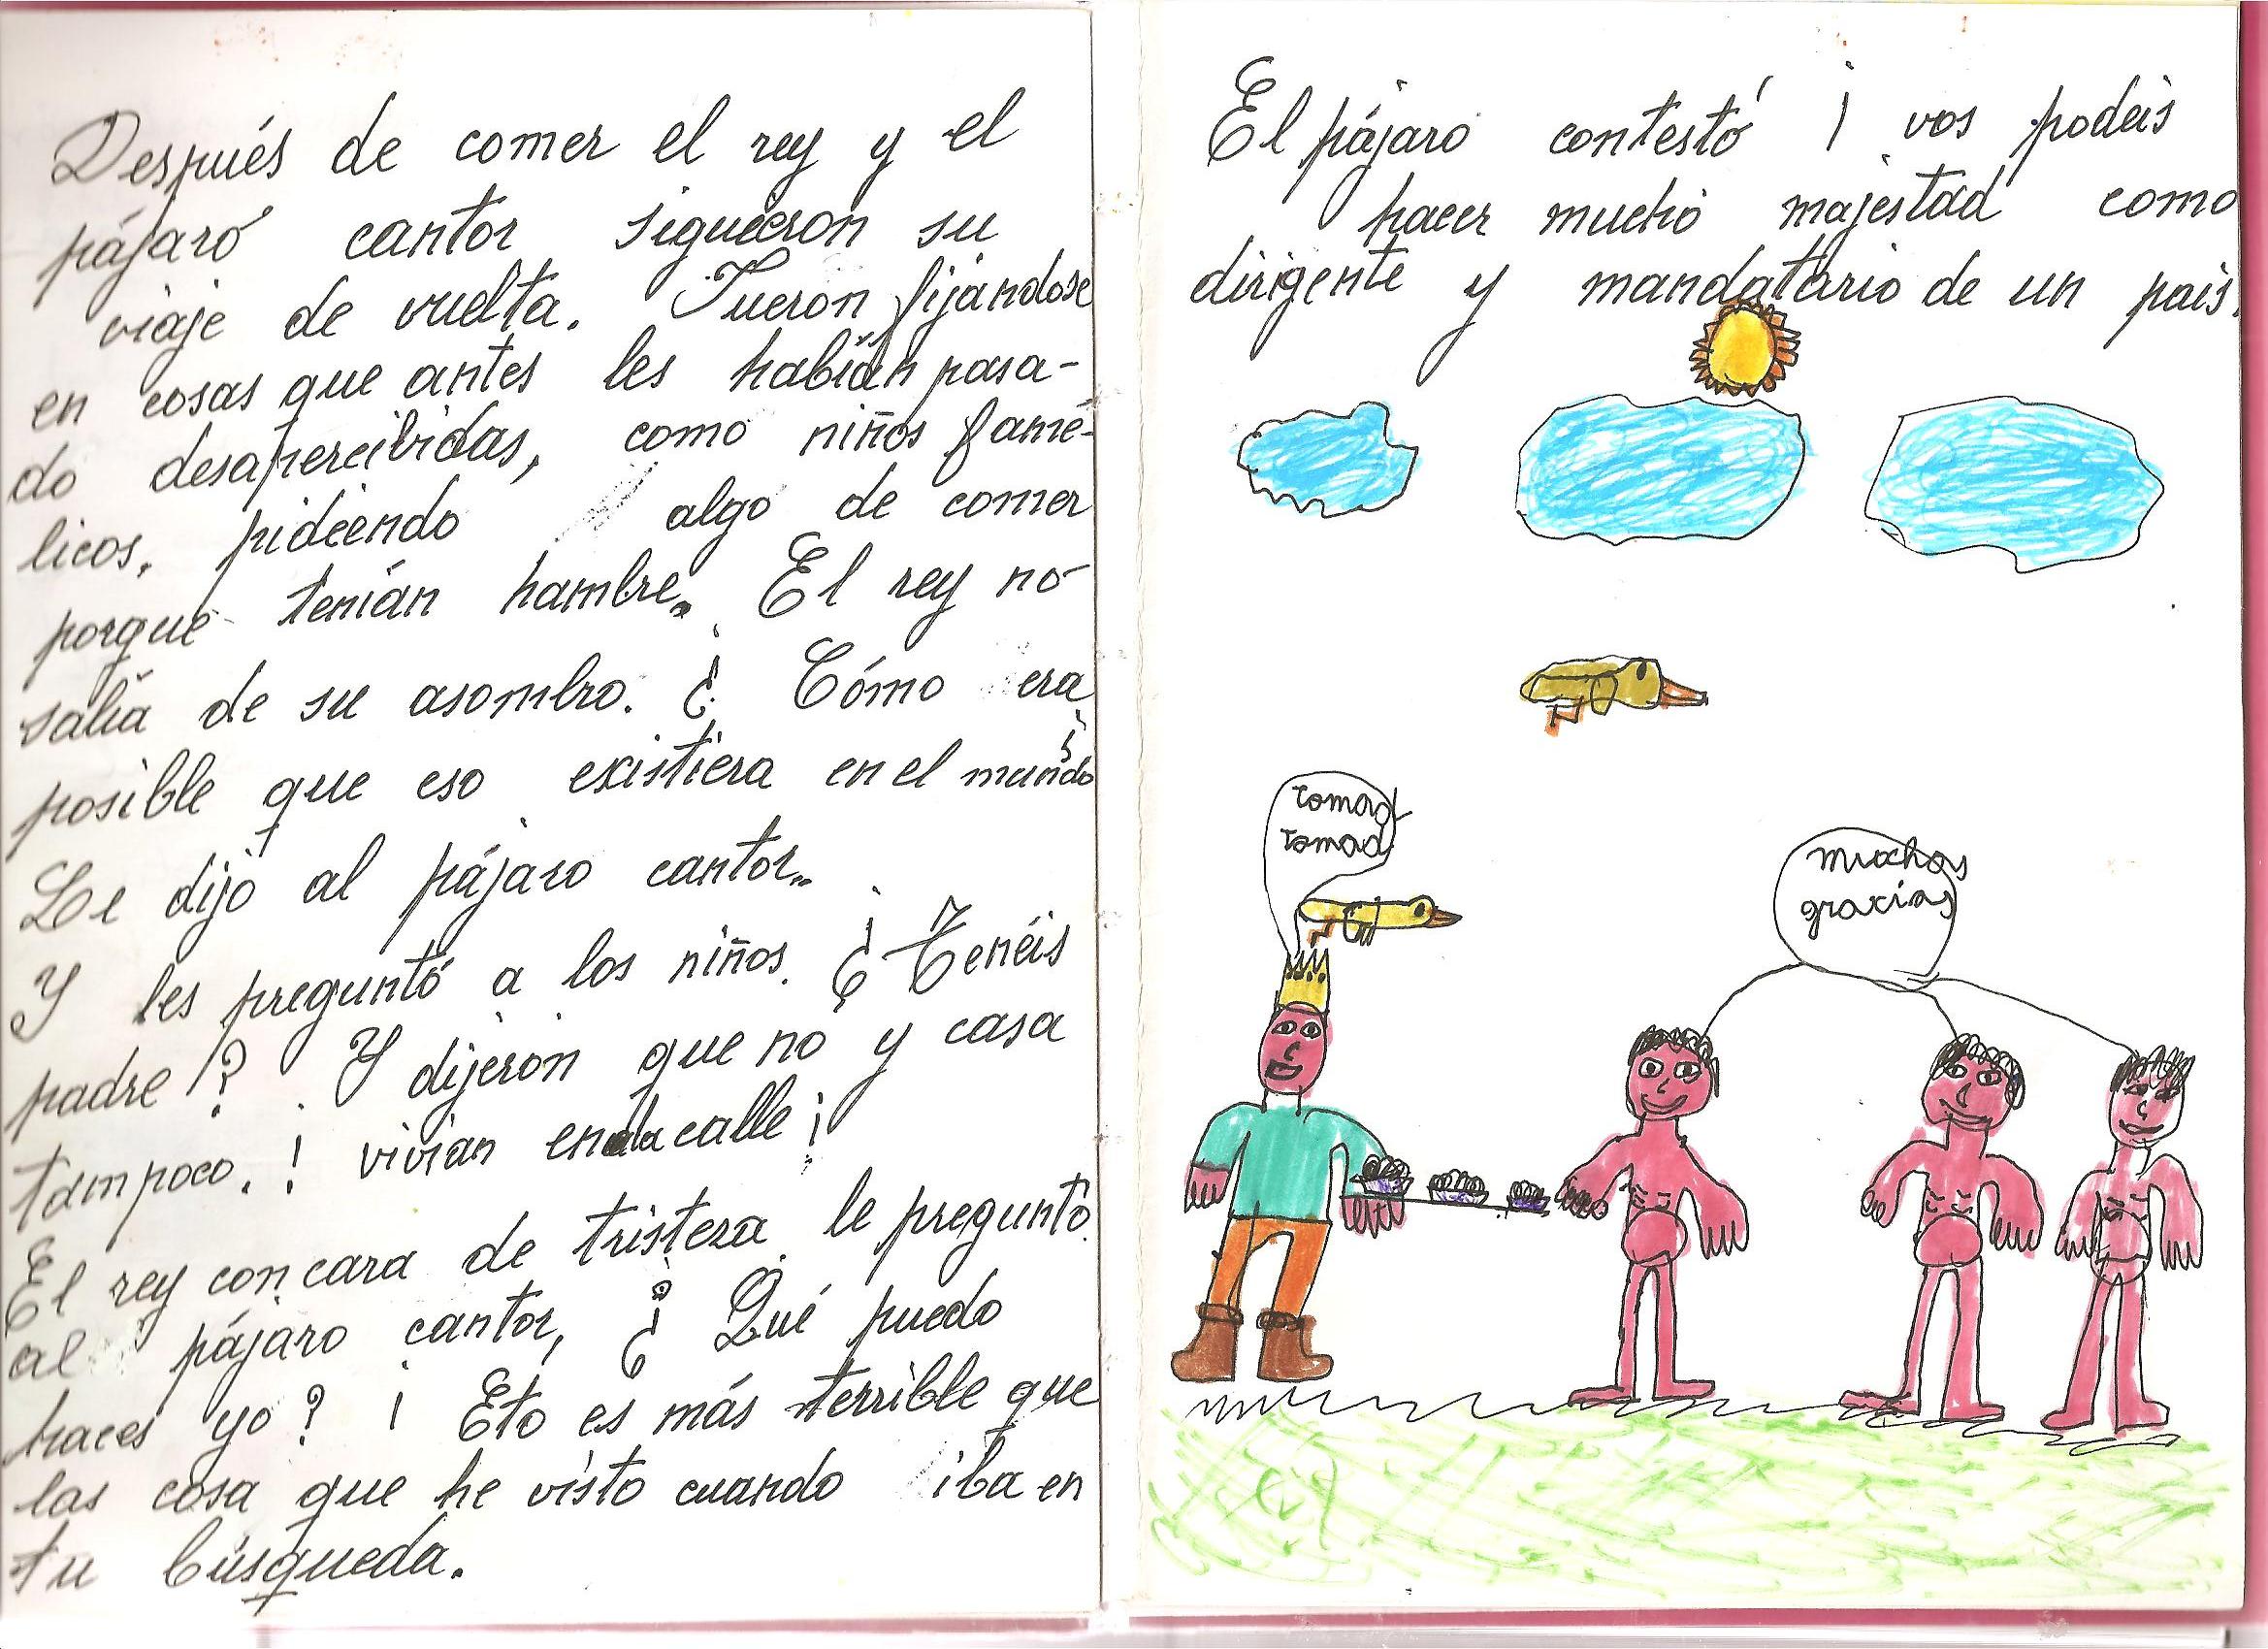 Después de comer el rey y el
pájaro cantor siguieron su
viaje de vuelta. Fueron fijándose
en cosas que antes les habían pasa-
do desapercibidas, como niños famé-
licos, pidiendo algo de comer
porque tenían hambre. El rey no
salía de su asombro. ¿ Cómo era
posible que eso existiera en el mundo?
Le dijo al pájaro cantor..
Y les preguntó a los niños. ¿ Tenéis
padre ? . Y dijeron que no y casa
tampoco. ! vivían en la calle ¡
El rey con cara de tristeza le preguntó
al pájaro cantor, ¿ Qué puedo
hacer yo ? ¡ Eto es más terrible que
las cosa que he visto cuando iba en
tu búsqueda.
El pájaro contestó ¡ vos podéis
hacer mucho majestad como
dirigente y mandatario de un país.
tomad
tomad
muchas
gracias